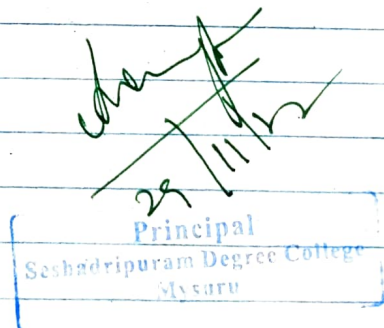 29/11/22
Principal
Seshadripuram Degree College
Mysuru